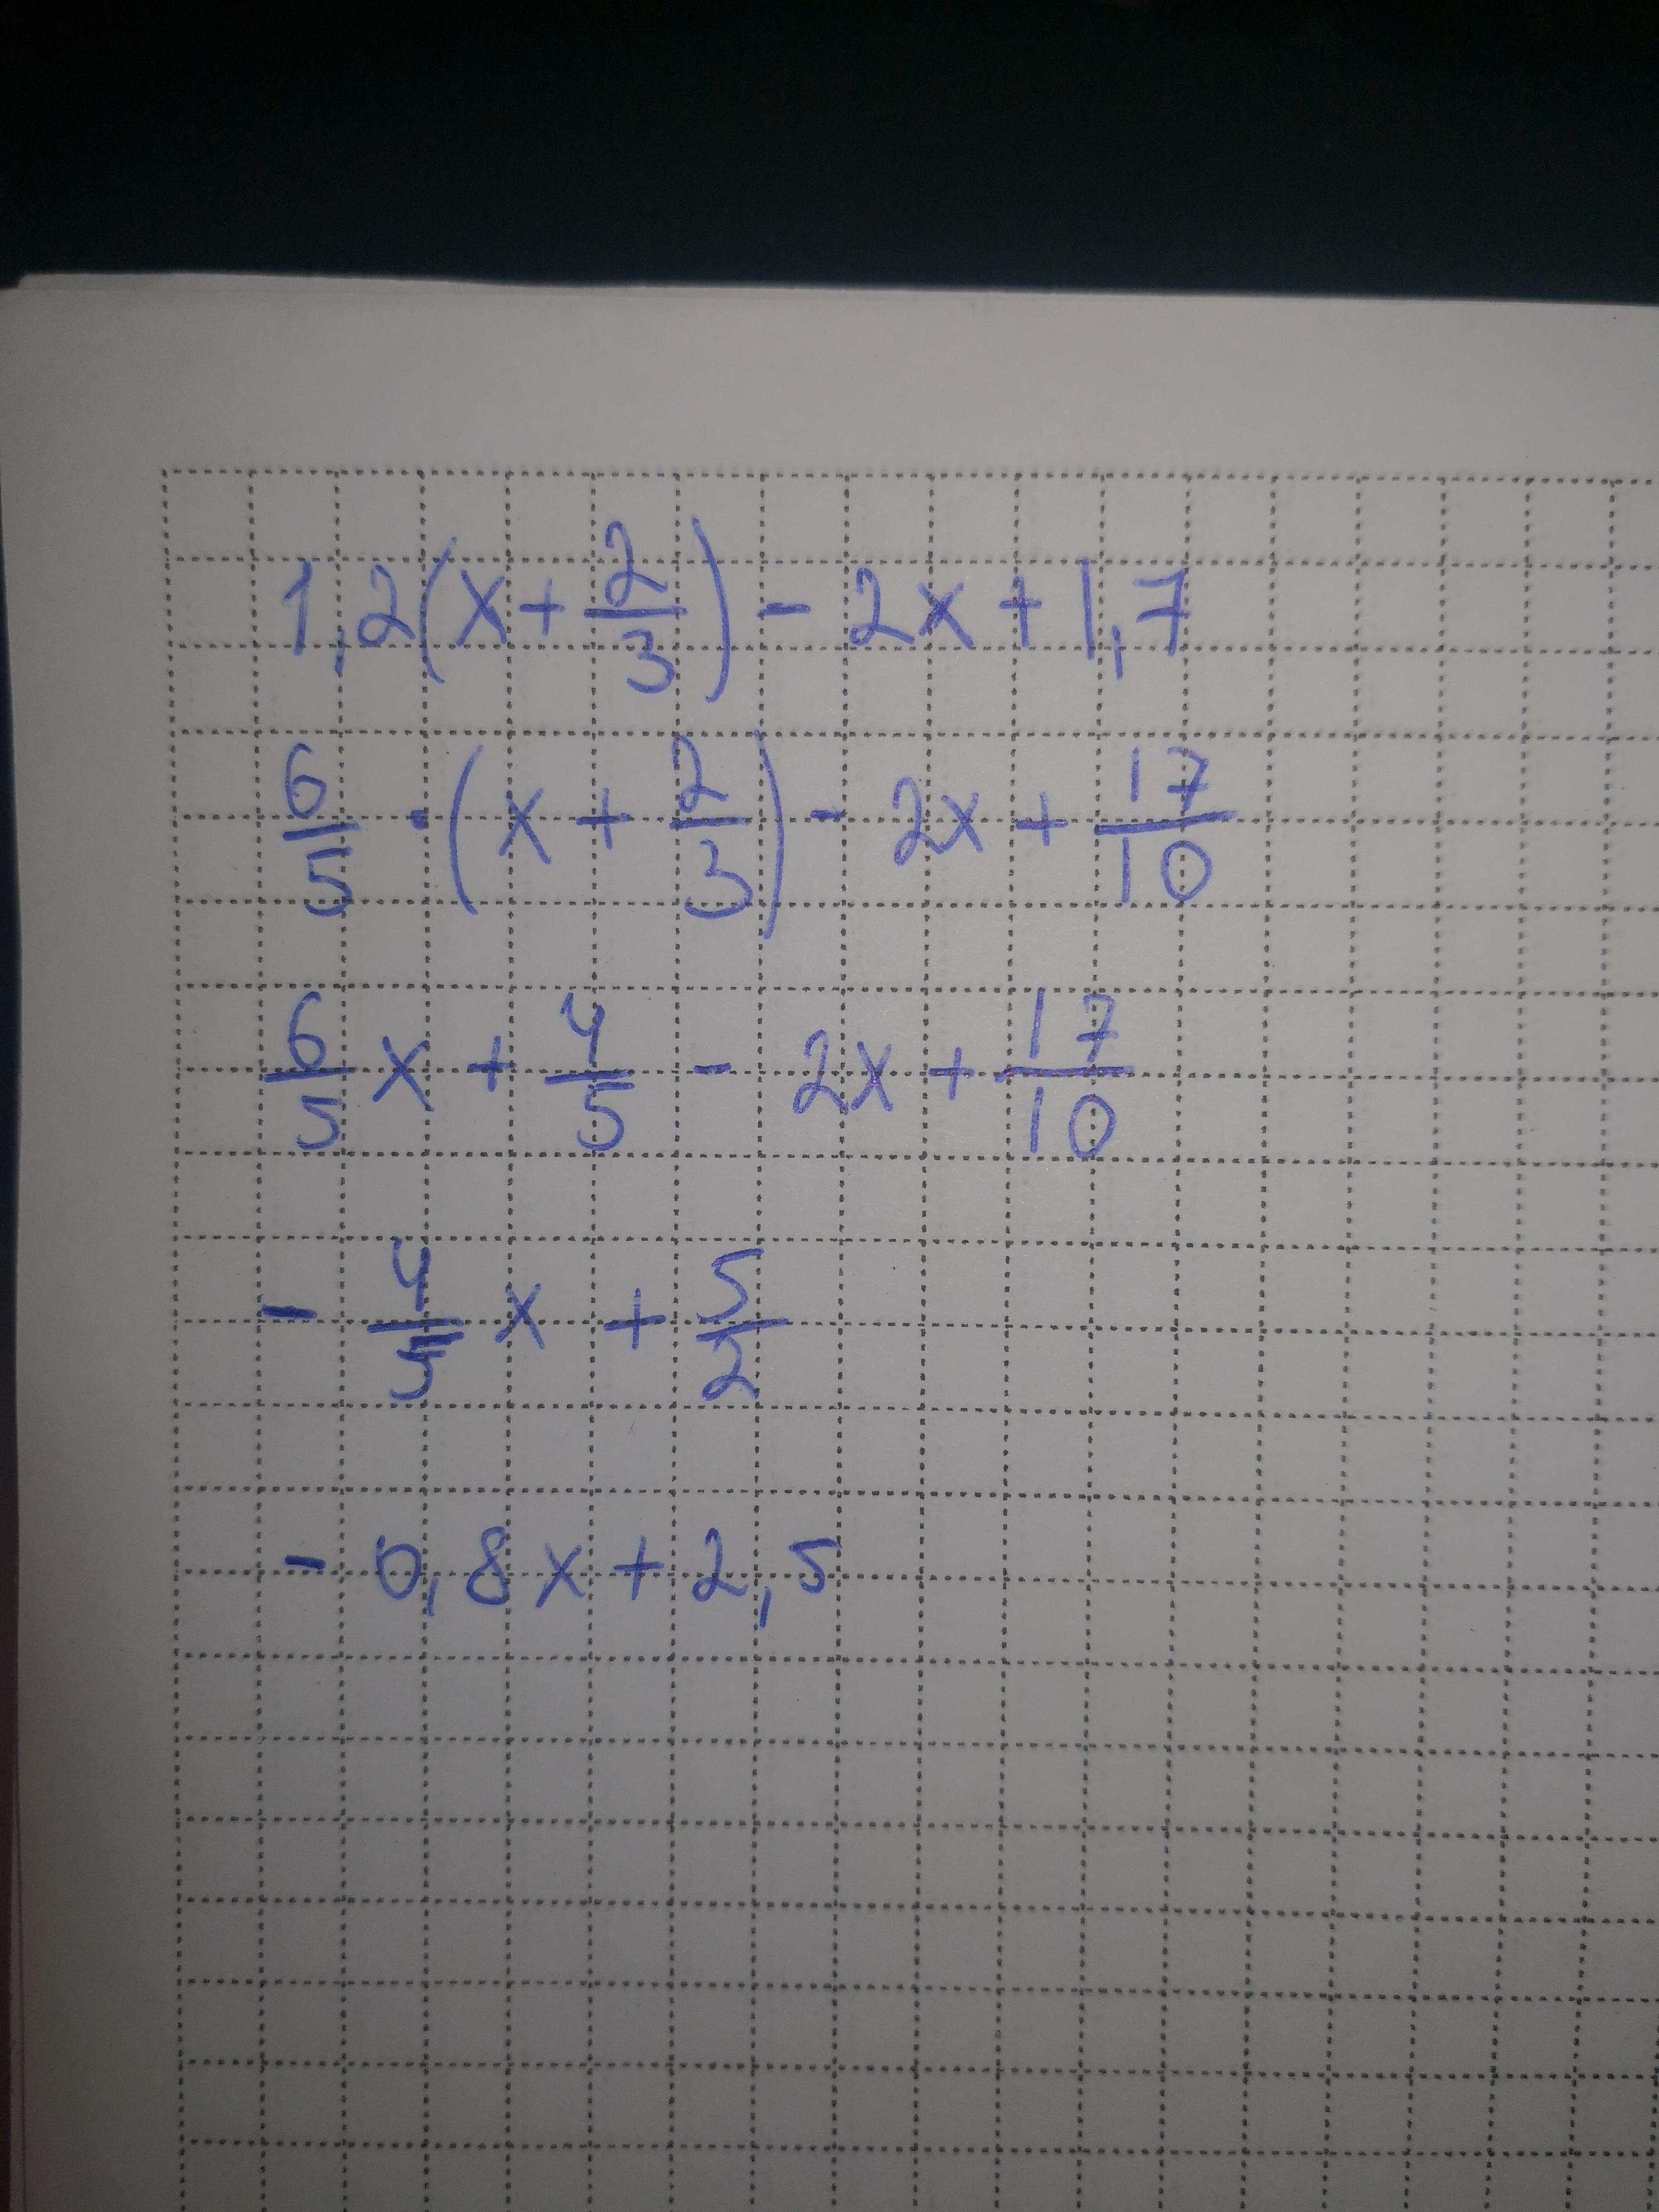 1,2(x+2/3)-2x+1,7
6/5·(x+2/3)-2x+17/10
6/5x+4/5-2x+17/10
-4/5x+5/2
-0,8x+2,5